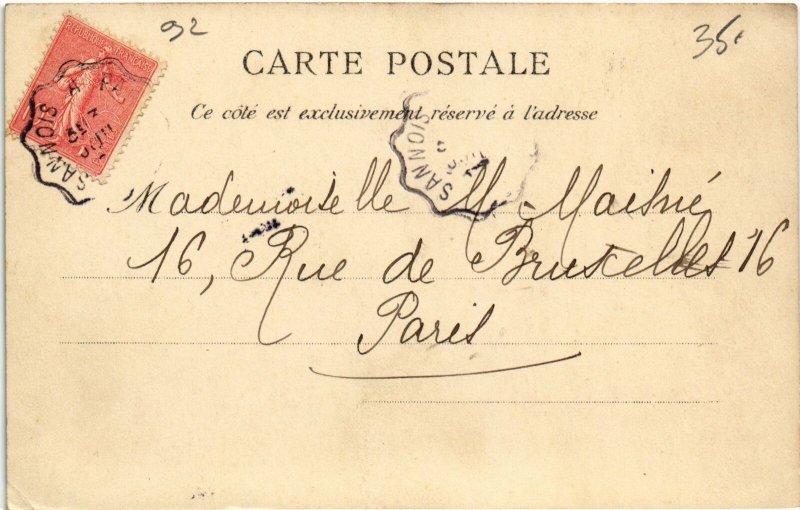 92
35
RÉPUBLIQUE FRANÇAISE
SANNOIS A PA
CARTE POSTALE
Ce côté est exclusivement réservé à l'adresse
SANNOIS
Mademoiselle M. 
16, Rue de Bruxelles 16
Paris